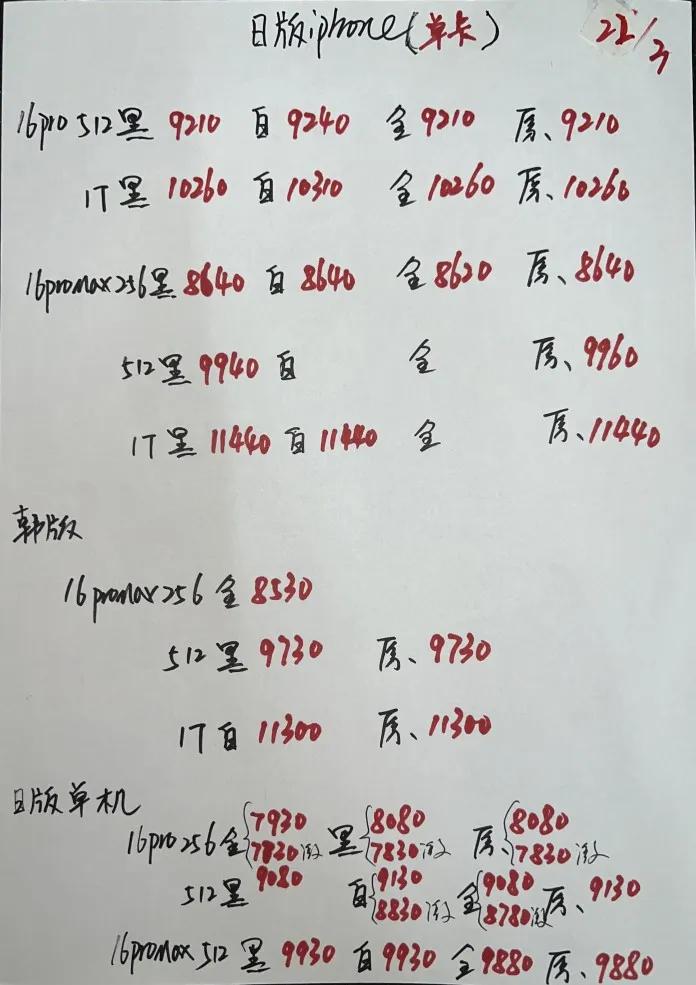 日版iphone(单卡) 22/3
16pro 512黑 9210 白 9240 金 9210 原、9210
1T黑 10260 白 10310 金 10260 原、10260
16promax256黑 8640 白 8640 金 8620 原、8640
512黑 9940 白 金 原、9960
1T黑 11440 白 11440 金 原、11440
韩版
16promax256金 8530
512黑 9730 原、9730
1T白 11300 原、11300
日版单机
16pro256金{7930 黑{8080 原、{8080
7830激 7830激 7830激
512黑 9080 白{9130 金{9080 原、9130
8830激 8780激
16promax512黑 9930 白 9930 金 9880 原、9880